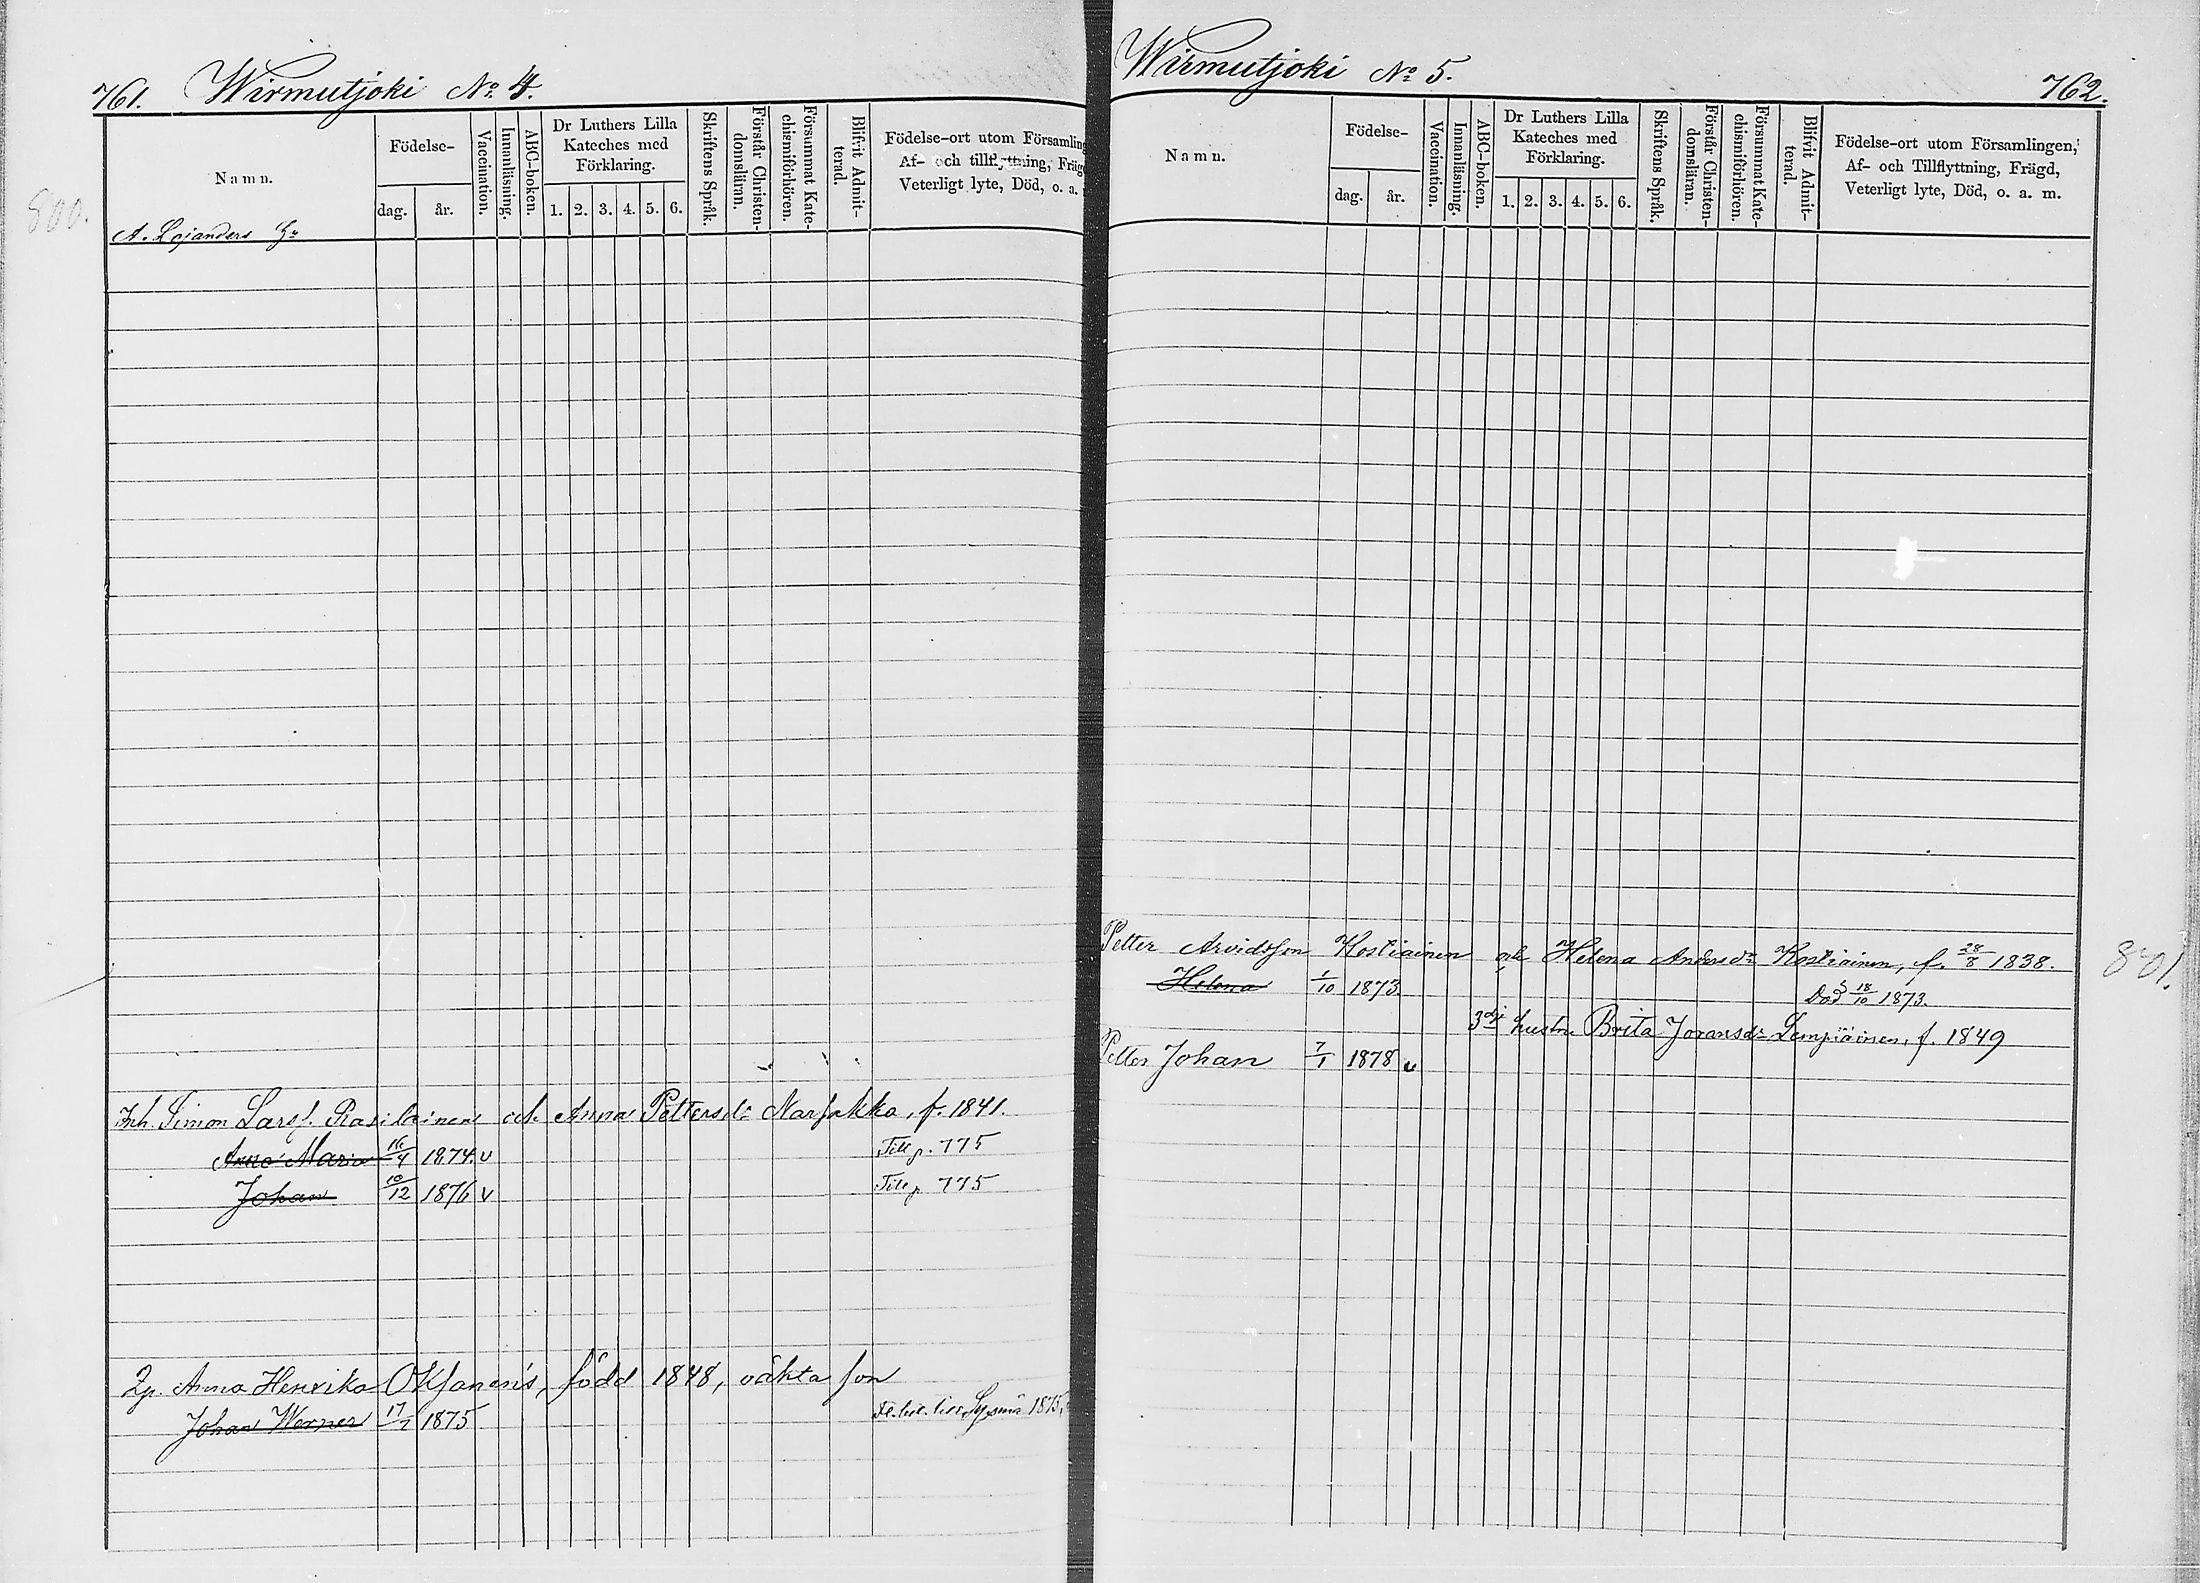 761. Wirmutjoki No 4.
Namn.
Födelse-
dag.
år.
Vaccination.
Innanläsning.
ABC-boken.
Dr Luthers Lilla
Kateches med
Förklaring.
1. 2. 3. 4. 5. 6.
Skriftens Språk.
Förstår Christen-
domsläran.
Försummat Kate-
chismiförhören.
Blifvit Admit-
terad.
Födelse-ort utom Församling
Af- och tillflyttning, Frägd
Veterligt lyte, Död, o. a.
800.
A. Lejanders
Inh. Simon Larss. Rasilainen och Anna Pettersdr Narjakka, f. 1841.
Anna Maria 16/4 1874 v Till p. 775
Johan 10/12 1876 v Till p 775
Anna Henrika Oksanens, född 1848, oäkta son
Johan Werner 17/7 1875 Sysmä 1875
Wirmutjoki No 5.
762.
Namn.
Födelse-
dag.
år.
Vaccination.
Innanläsning.
ABC-boken.
Dr Luthers Lilla
Kateches med
Förklaring.
1. 2. 3. 4. 5. 6.
Skriftens Språk.
Förstår Christen-
domsläran.
Försummat Kate-
chismiförhören.
Blifvit Admit-
terad.
Födelse-ort utom Församlingen,
Af- och Tillflyttning, Frägd,
Veterligt lyte, Död, o. a. m.
Petter Arvidsson Kostiainen och Helena Andersdr Kostiainen, f. 28/8 1838.
801.
Helena 1/10 1873 Död 18/10 1873.
3dje hustru Brita Joransdr Lempiäinen, f. 1849
Petter Johan 7/1 1878 v